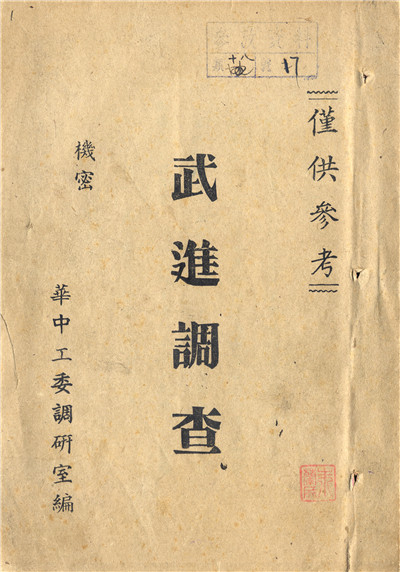 僅供參考
武進調查
機密
華中工委調研室編
17